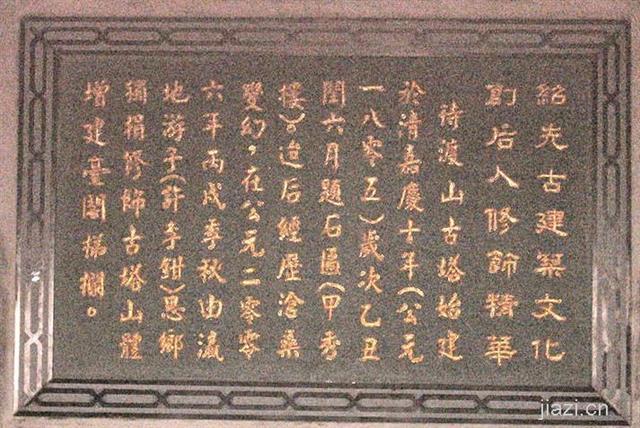 紹先古建築文化
創后人修飾精華
待渡山古塔始建
於清嘉慶十年(公元
一八零五)歲次乙丑
閏六月題石匾(甲秀
樓)。迨后經歷滄桑
變幻。在公元二零零
六年丙戌季秋由瀛
地游子(許孝鉗)思鄉
獨捐修飾古塔山體
增建臺閣梯欄。
jiazi.cn